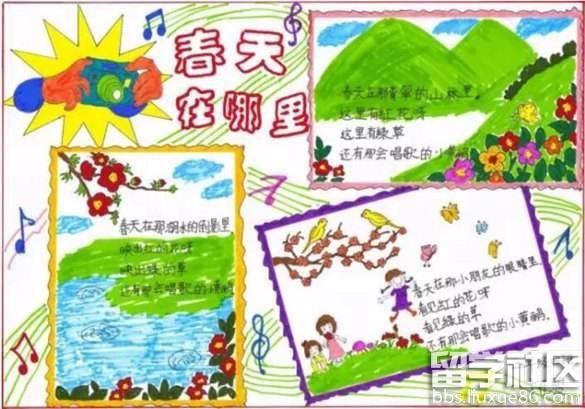 春天
在哪里
春天在那青翠的山林里,
这里有红花呀
这里有绿草
还有那会唱歌的小黄鹂
春天在那湖水的倒影里
映出红的花呀
映出绿的草
还有那会唱歌的
春天在那小朋友的眼睛里
看见红的花呀
看见绿的草
还有那会唱歌的小黄鹂。
留学社区
bbs.liuxue86.com